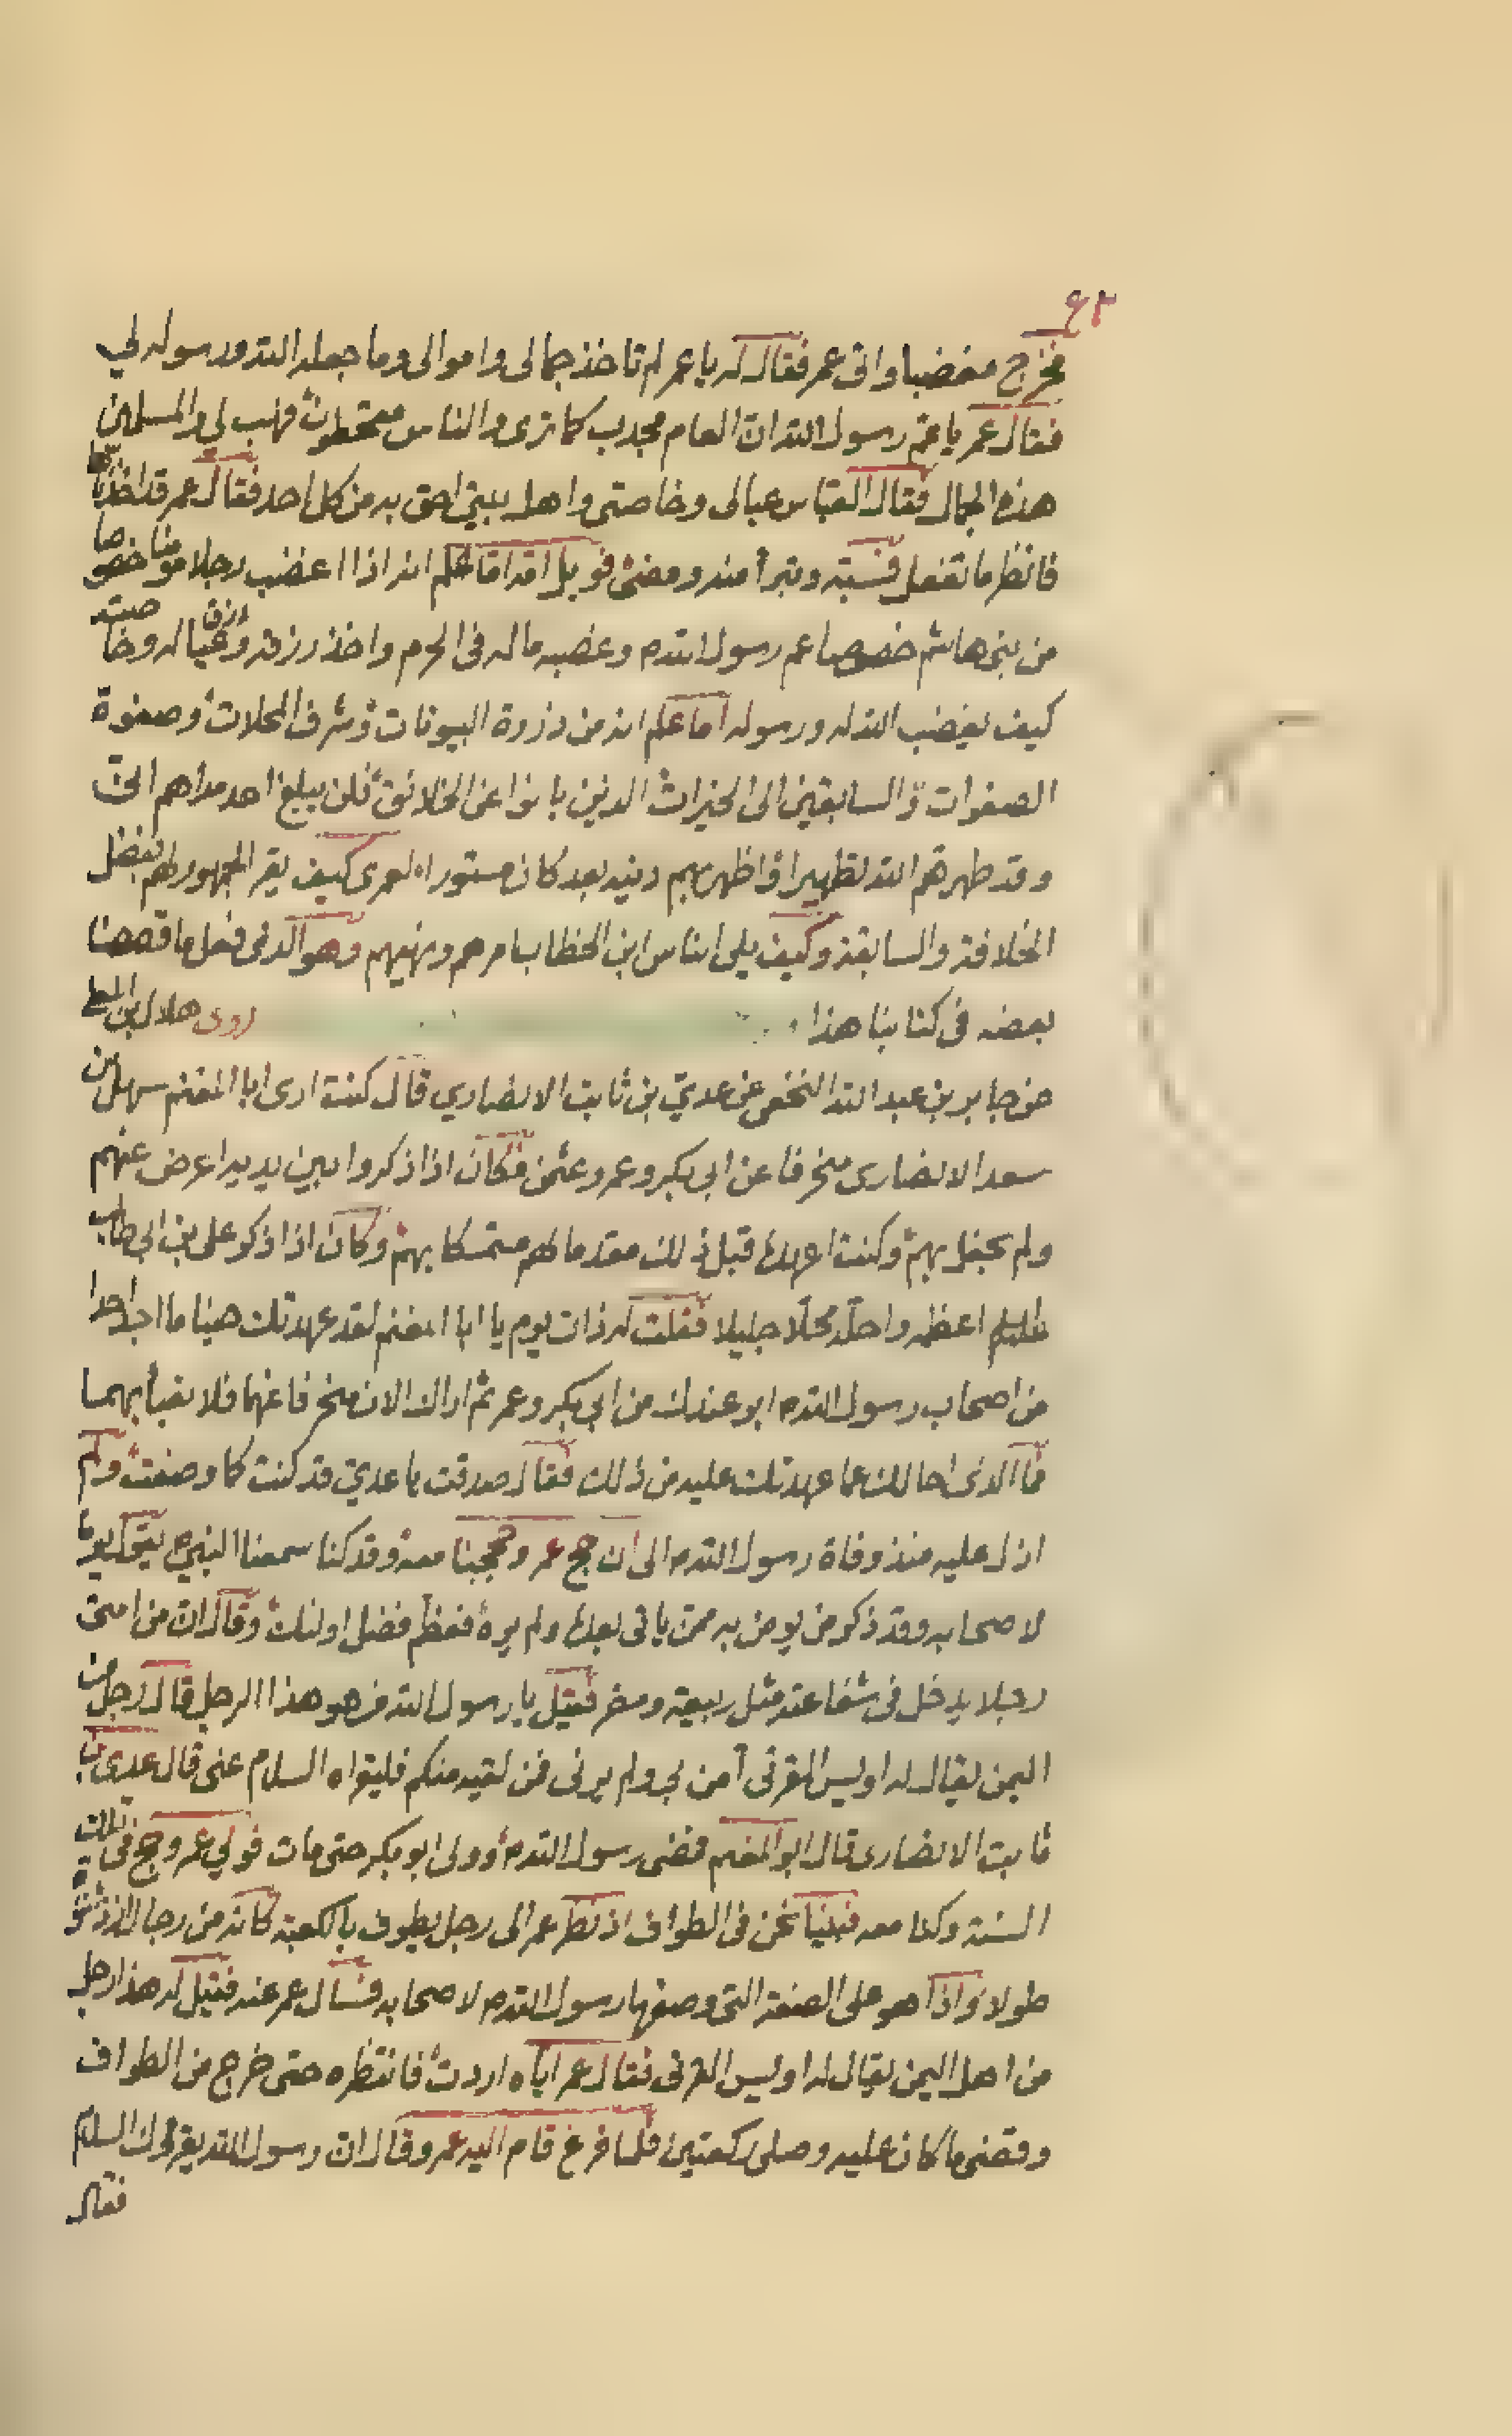 ٩٣
فخرج مغضبا واتى عمر فقال له يا عمر لم تاخذ جمالى واموالى وما جعله الله ورسوله لي
فقال عمر يا عم رسول الله ان العام مجدب كما ترى والناس مقحطون فهب لى والمسلمين
هذه الجمال فقال العباس عيالى وخاصتى واهل بيتى احق به من كل احد فقال عمر قد اخذتها
فانظر ما تفعل فسبته وتبرأ منه ومضى فويل له اما علم انه اذا اغضب رجلا مومنا خصوصا
من بنى هاشم خصوصا عم رسول الله م وغضبه ماله فى الحرم واخذ رزقه ورزق عياله وخاصته
كيف يغضب الله له ورسوله اما علم انه من ذروة البيوتات وشرف المحلات وصفوة
الصفوات والسابقين الى الخيرات الذين بانوا عن الخلائق فلن يبلغ احد مداهم الحق
وقد طهرهم الله تطهيرا واظهر بهم دينه بعد كان مستورا لعمرى كيف يقر الجمهور لهم بفضل
الخلافة والسابقة وكيف يلى الناس ابن الخطاب امرهم ونهيهم وهو الذى فعل ما قصصنا
بعضه فى كتابنا هذا روى هلال بن العلا
عن جابر بن عبد الله النخعى عن عدي بن ثابت الانصاري قال كنت ارى ابا المغنم سهل بن
سعد الانصارى منحرفا عن ابى بكر وعمر وعثمن فكان اذا ذكروا بين يديه اعرض عنهم
ولم يحفل بهم وكنت اعهده قبل ذلك مقدما لهم متمسكا بهم وكان اذا ذكر على بن ابى طالب
عليه السلم اعظمه واحله محلا جليلا فقلت له ذات يوم يا ابا المغنم لقد عهدتك حينا ما اجد احدا
من اصحاب رسول الله م ابر عندك من ابى بكر وعمر ثم اراك الان منحرفا عنهما فلا تعبأ بهما
فما الذى احالك عما عهدتك عليه من ذلك فقال صدقت يا عدي قد كنت كما وصفت ولم
ازل عليه منذ وفاة رسول الله م الى ان حج عمر وحججنا معه وقد كنا سمعنا النبى م يقول يوما
لاصحابه وقد ذكر من يومن به ممن ياتى بعده ولم يره فعظم فضل اولئك وقال ان من امتى
رجلا يدخل فى شفاعته مثل ربيعة ومضر فقيل يا رسول الله من هو هذا الرجل قال رجل من
اليمن يقال له اويس القرنى آمن بى ولم يرنى فمن لقيه منكم فليقراه السلام عنى قال عدى بن
ثابت الانصارى قال ابو المغنم فمضى رسول الله م وولى ابو بكر حتى مات فولي عمر وحج فى تلك
السنة وكنا معه فبينا نحن فى الطواف اذ نظر عمر الى رجل يطوف بالكعبة كانه من رجال ازد شنوة
طولا واذا هو على الصفة التى وصفها رسول الله م لاصحابه فسال عمر عنه فقيل له هذا رجل
من اهل اليمن يقال له اويس القرنى فقال عمر اياه اردت فانتظره حتى خرج من الطواف
وقضى ما كان عليه وصلى ركعتين فلما فرغ قام اليه عمر وقال ان رسول الله يقرئك السلم
فقال